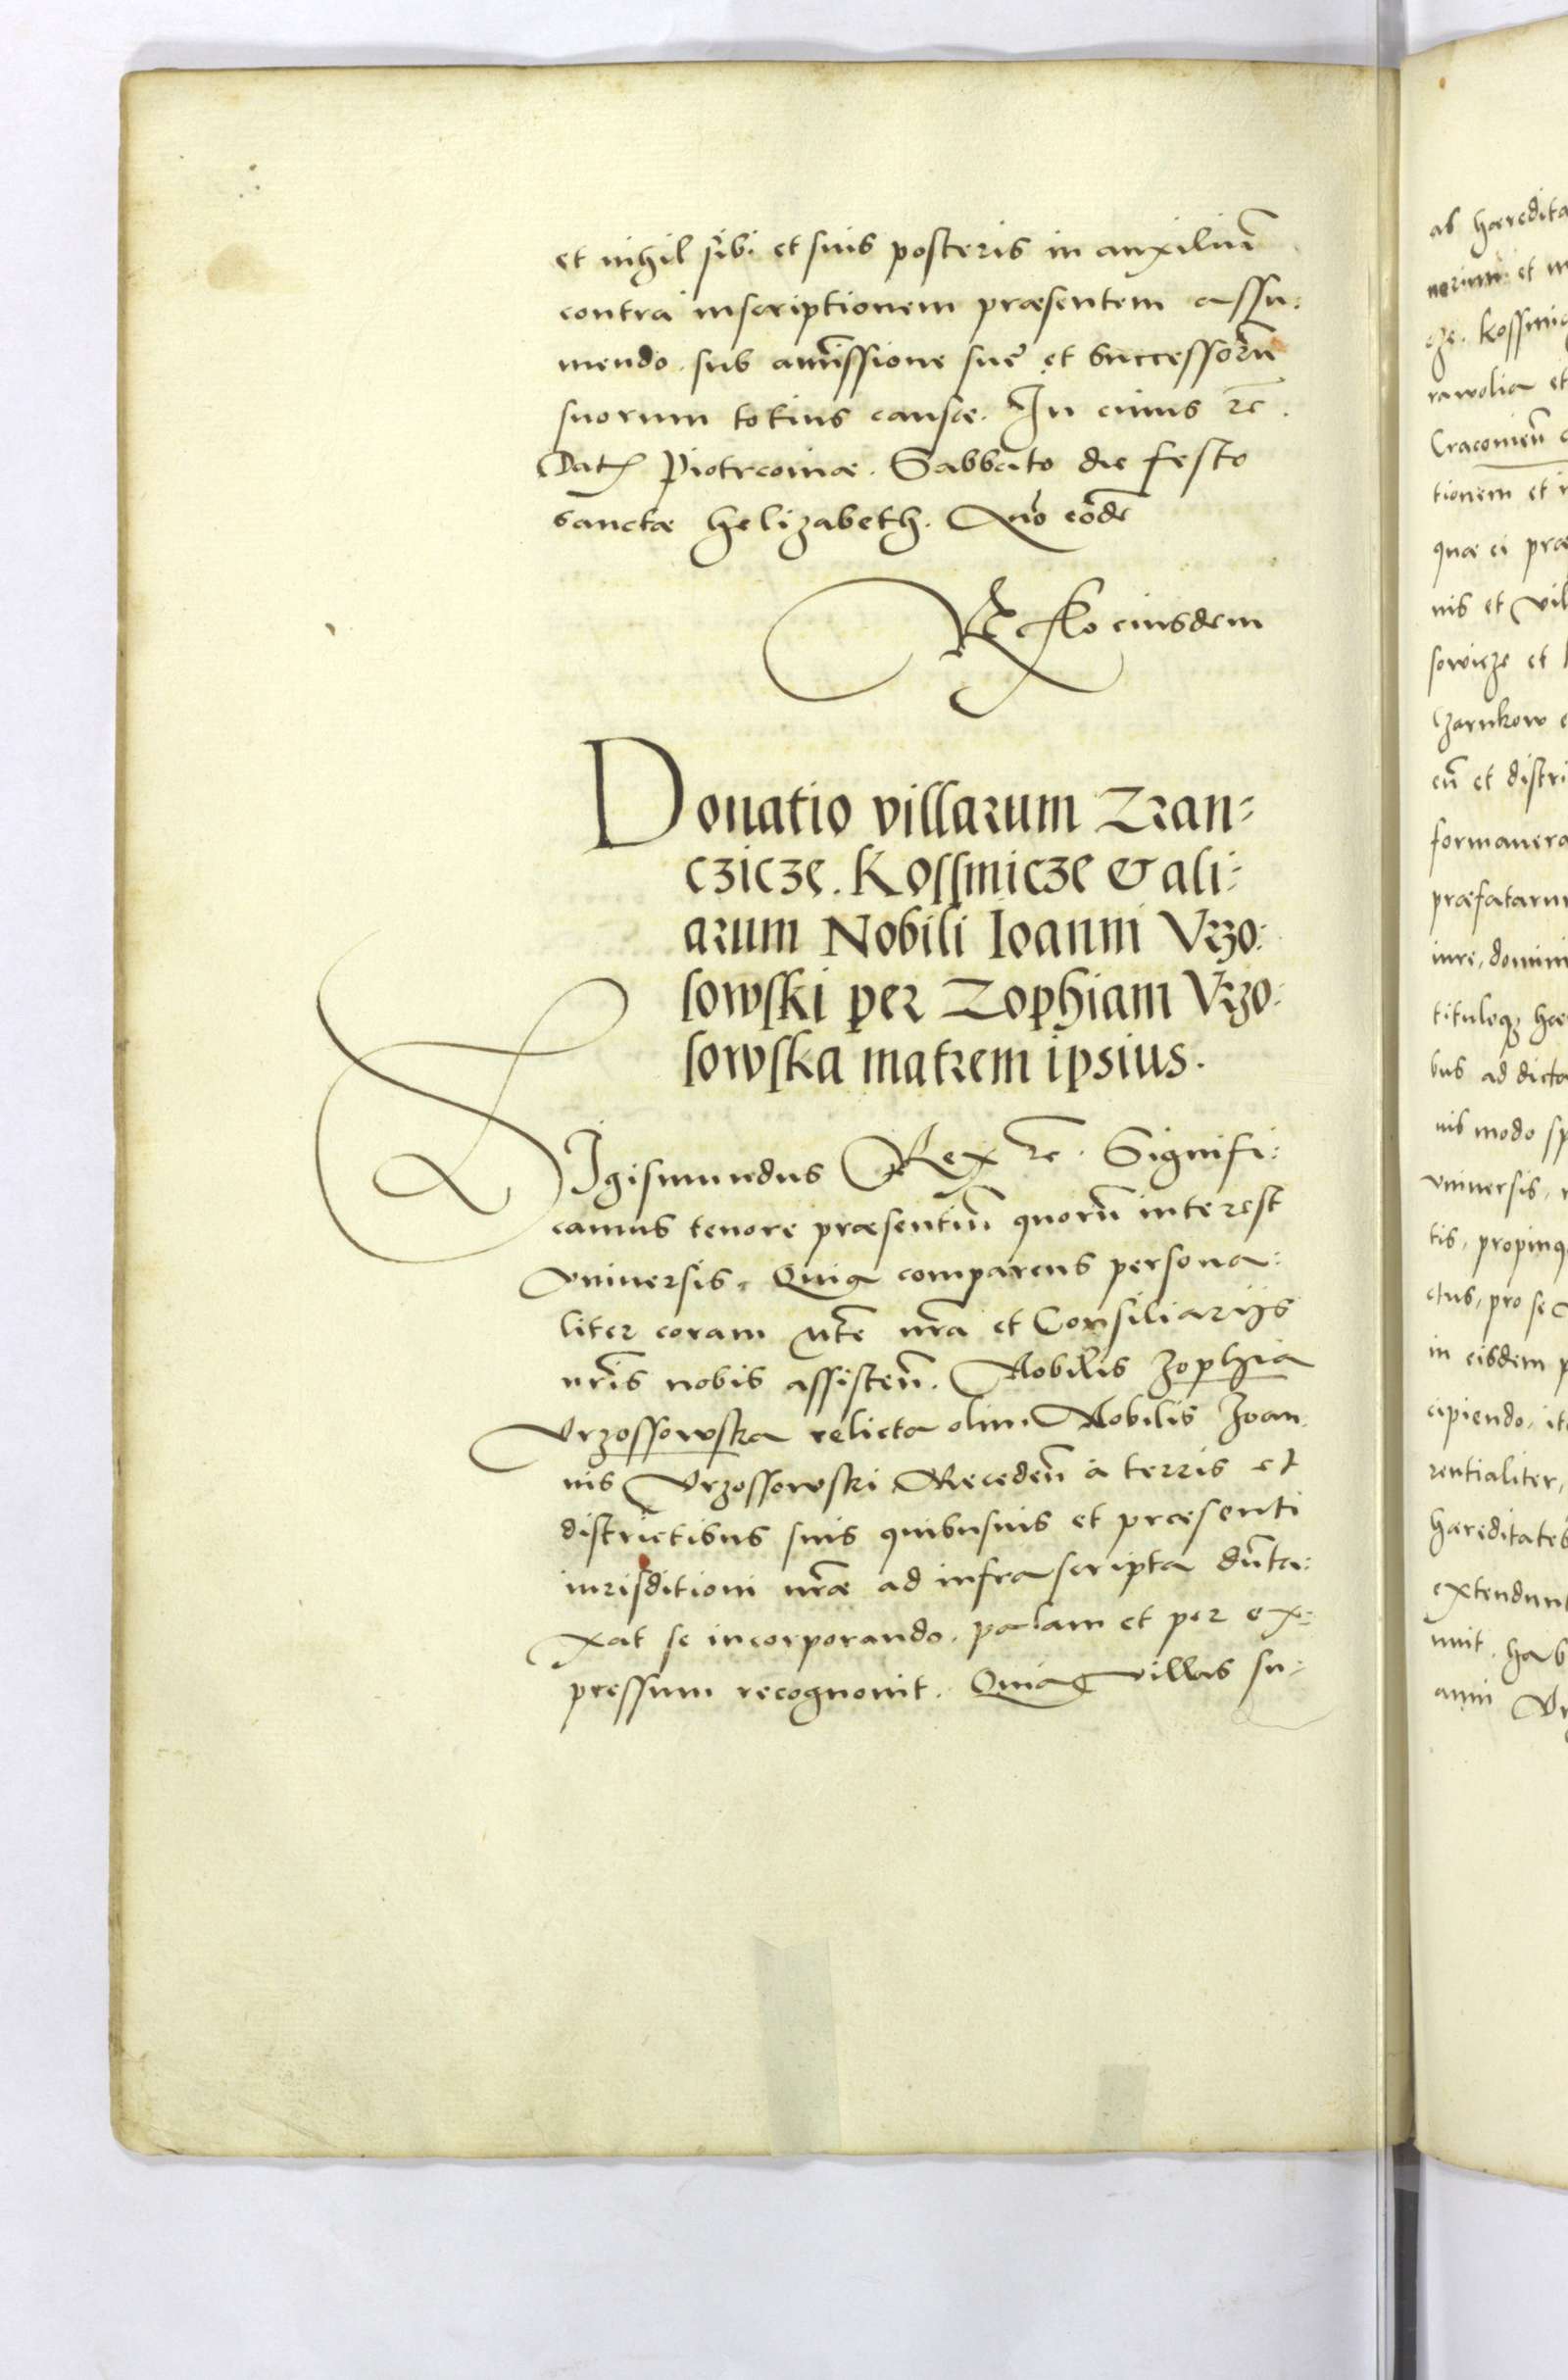 et nihil sibi et suis posteris in auxiliū
contra inscriptionem præsentem assu:
mendo. sub amissione suę et Successorū
suorum totius causæ. In cuius rc̄.
Dat Piotrcoviæ. Sabbato die festo
sanctæ Helizabeth. Año eodē
Rͨ flo eiusdem
Donatio villarum Zran-
cziczę. Kossmicze & ali:
arum Nobili Ioanni Vrzo:
sowski per Zophiam Vrzo:
sowska matrem ipsius.
SIgismundus Rex rc̄. Signifi:
camus tenore præsentiū quorū interest
Vniuersis. Quia comparens persona:
liter coram Mte nrā et Consiliarijs
nrīs nobis assisteñ. Nobilis Zophia
Vrzossowska relicta olim Nobilis Ioan
nis Vrzossowski Recedeñ à terris et
districtibus suis quibusuis et præsenti
iurisditioni nrǣ ad infrascripta dūta:
xat se incorporando. palam et per ex:
pressum recognouit. Quia villas su-
ab hæredita
nerium et m
cze. Kossmic
rawolia et
Cracovieñ
tionem et i
quæ ei præ
nis et vil
sowicze et
Czarnkow
eū et distri
formauera
præfatarum
iure, domini
tituloq₃ hæ
bus ad dicta
nis modo sp
vniuersis,
tis, propinq
ctus, pro se
in eisdem p
cipiendo, it
rentialiter,
hæreditates
extendunt
unit. hab
anni Vr